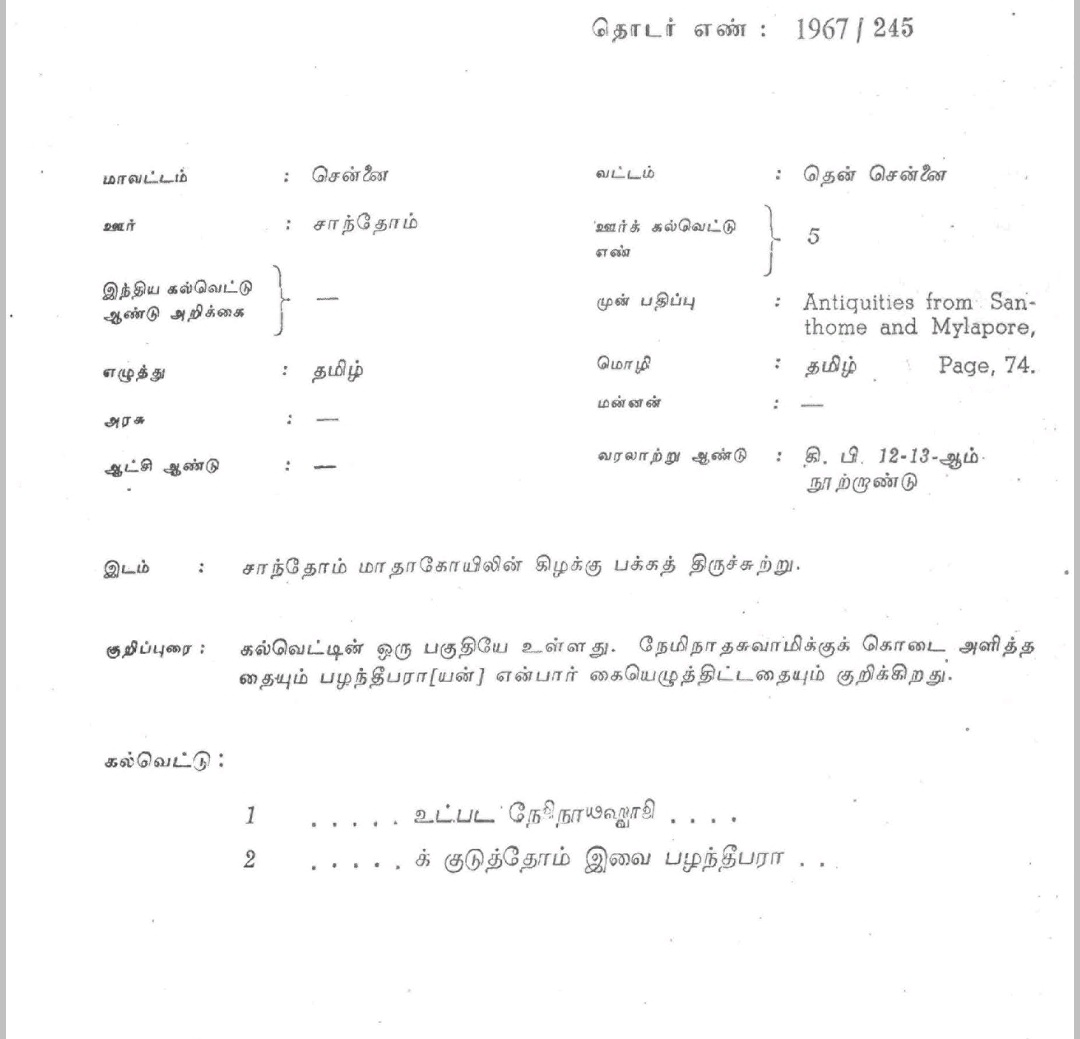 தொடர் எண் : 1967 / 245
மாவட்டம் : சென்னை வட்டம் : தென் சென்னை
ஊர் : சாந்தோம் ஊர்க் கல்வெட்டு எண் } 5
இந்திய கல்வெட்டு ஆண்டு அறிக்கை } — முன் பதிப்பு : Antiquities from San-
thome and Mylapore,
எழுத்து : தமிழ் மொழி : தமிழ் Page, 74.
அரசு : — மன்னன் : —
ஆட்சி ஆண்டு : — வரலாற்று ஆண்டு : கி. பி. 12-13-ஆம்
நூற்றாண்டு
இடம் : சாந்தோம் மாதாகோயிலின் கிழக்கு பக்கத் திருச்சுற்று.
குறிப்புரை : கல்வெட்டின் ஒரு பகுதியே உள்ளது. நேமிநாதசுவாமிக்குக் கொடை அளித்த
தையும் பழந்தீபரா[யன்] என்பார் கையெழுத்திட்டதையும் குறிக்கிறது.
கல்வெட்டு :
1 . . . . . உட்பட . . . .
2 . . . . . க் குடுத்தோம் இவை பழந்தீபரா . . .